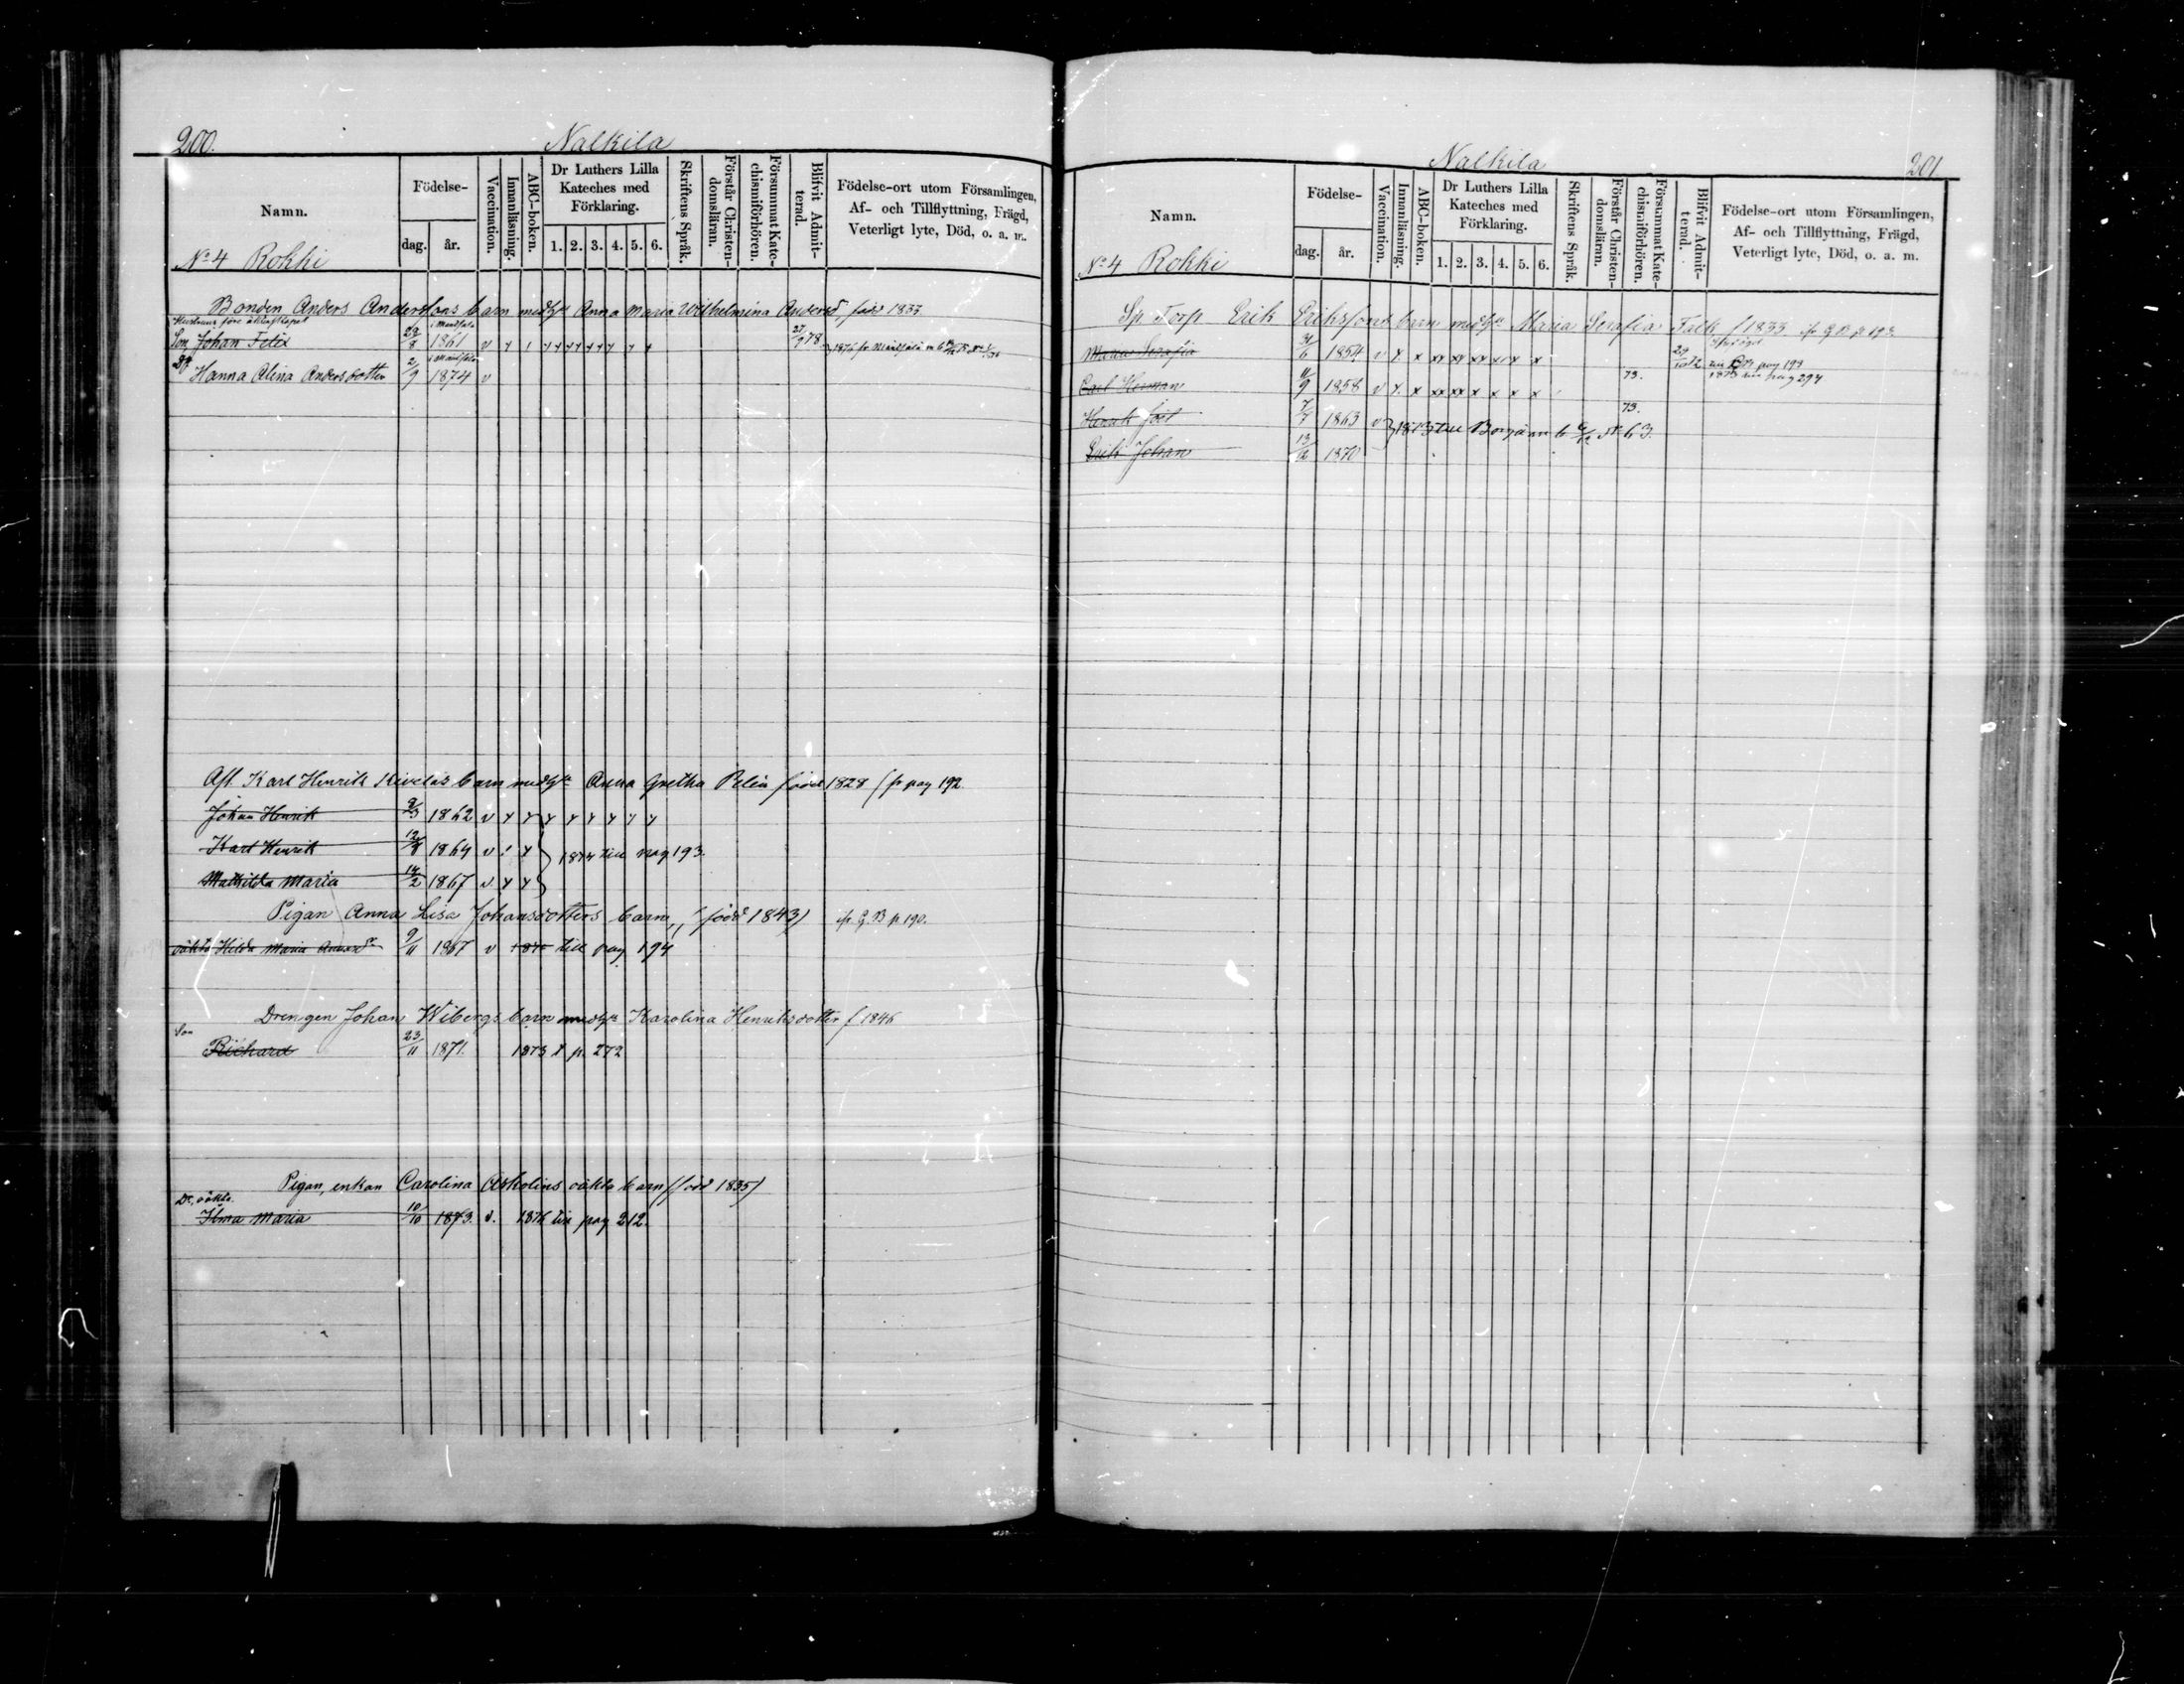 200.
Nalkila
Namn.
Födelse-
dag. år.
Vaccination.
Innanläsning.
ABC-boken.
Dr Luthers Lilla Kateches med Förklaring.
1. 2. 3. 4. 5. 6.
Skriftens Språk.
Förstår Christendomsläran.
Försummat Katechismiförhören.
Blifvit Admitterad.
Födelse-ort utom Församlingen,
Af- och Tillflyttning, Frägd,
Veterligt lyte, Död, o. a. m.
No 4 Rokki
Bonden Anders Anderssons barn med h:u Anna Maria Wilhelmina Andersd. född 1833
Son Johan Felix 29/8 1861 v 27/9 78
Hanna Alina Andersdotter 2/9 1874 v
Afl. Karl Henrik Kivelös barn med h:u Anna Gretha Pelin född 1828 fr pag 192
Johan Henrik 9/3 1862 v
Karl Henrik 12/8 1864 v 1874 till pag 193.
Mathilda Maria 14/2 1867 v
Pigan Anna Lisa Johansdotters barn, (född 1843) ifr. g. B p 190.
oäkta Hilda Maria 9/11 1867 v till pag 194
Drengen Johan Wibergs barn med h:u Karolina Henriksdotter f 1846
Son
Richard 23/11 1871. 1873 t p. 272
Pigan, enkan Carolina Askolins oäkta barn (född 1835)
Dr, oäkta.
Ilma Maria 10/10 1873. v. 1876 till pag 212.
Nalkila
201.
Namn.
Födelse-
dag. år.
Vaccination.
Innanläsning.
ABC-boken.
Dr Luthers Lilla Kateches med Förklaring.
1. 2. 3. 4. 5. 6.
Skriftens Språk.
Förstår Christendomsläran.
Försummat Katechismiförhören.
Blifvit Admitterad.
Födelse-ort utom Församlingen,
Af- och Tillflyttning, Frägd,
Veterligt lyte, Död, o. a. m.
No 4 Rokki
Sp. Torp Erik Erikssons barn med h:u Maria Serafia Falk f 1833. ifr g. B. p. 193.
Maria Serafia 1854 v
Carl Herman 11/9 1858 v 73. 1873 till pag 294
Henrik 7/7 1863 v 73.
Erik Johan 13/12 1870